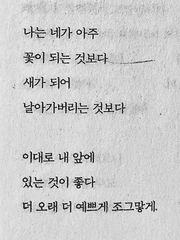 나는 네가 아주
꽃이 되는 것보다
새가 되어
날아가버리는 것보다

이대로 내 앞에
있는 것이 좋다
더 오래 더 예쁘게 조그맣게.